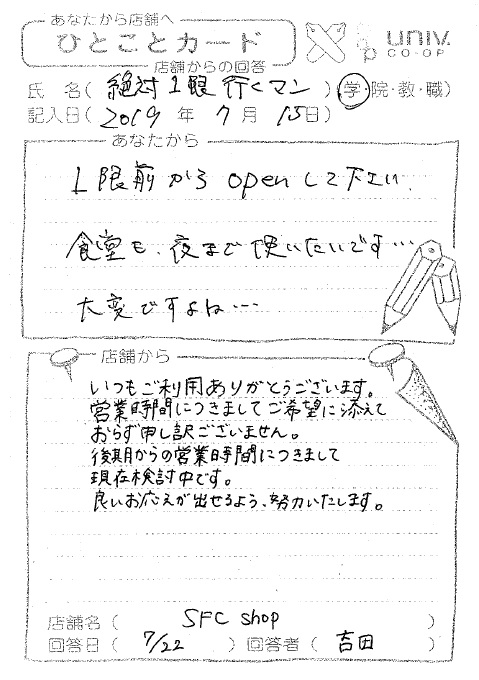 あなたから店舗へ
ひとことカード
店舗からの回答
univ.
CO-OP
氏 名( 絶対1限行くマン )(学・院・教・職)
記入日( 2019 年 7 月 15日)
あなたから
1限前から openして下さい.
食堂も、夜まで使いたいです…
大変ですよね…
店舗から
いつもご利用ありがとうございます。
営業時間につきましてご希望に添えて
おらず申し訳ございません。
後期からの営業時間につきまして
現在検討中です。
良いお応えが出せるよう、努力いたします。
店舗名( SFC shop )
回答日( 7/22 ) 回答者( 吉田 )